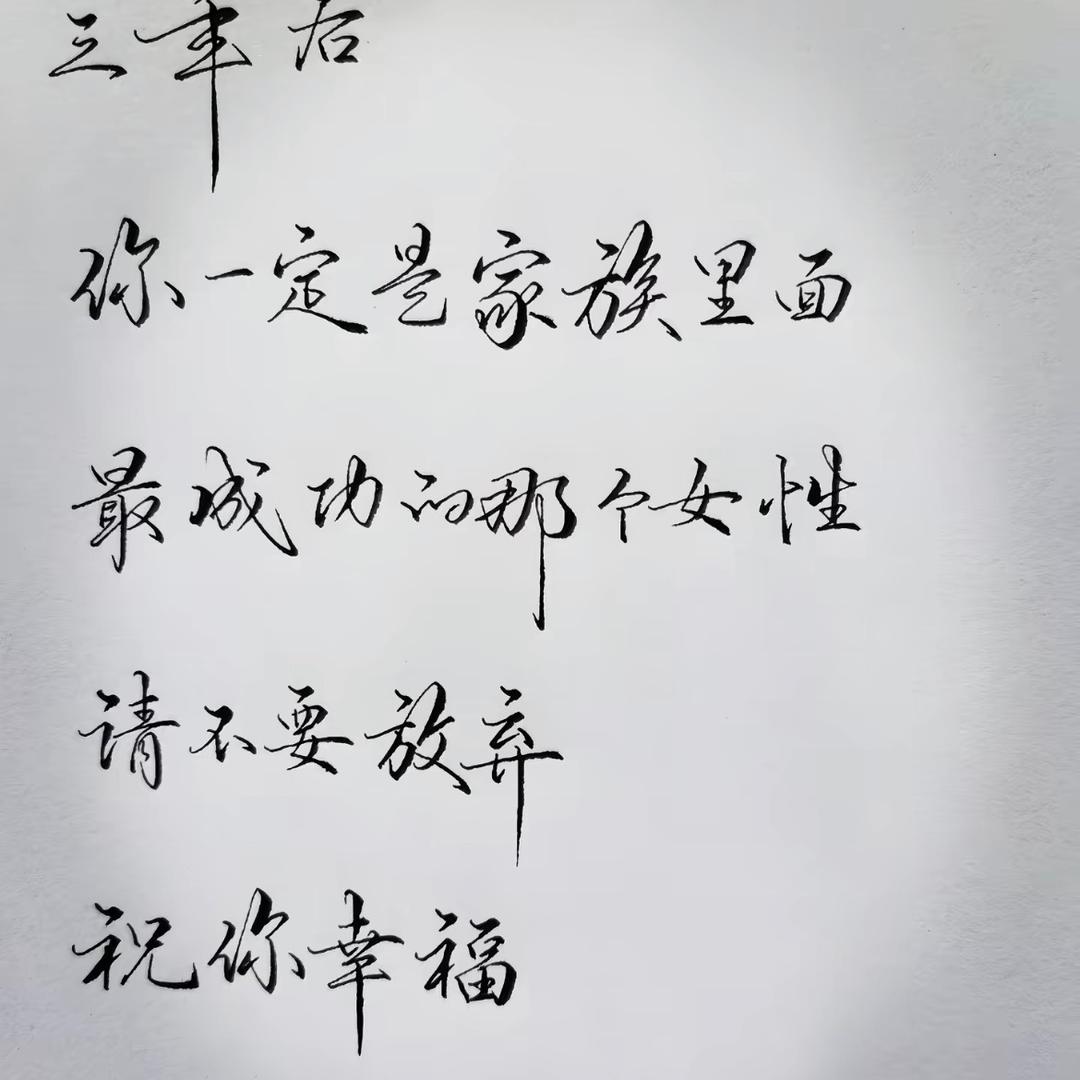 三年后
你一定是家族里面
最成功的那个女性
请不要放弃
祝你幸福